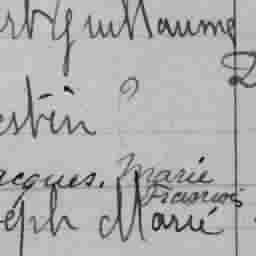 ert Guillaume
estin ?
acques. Marie
François
seph Marie